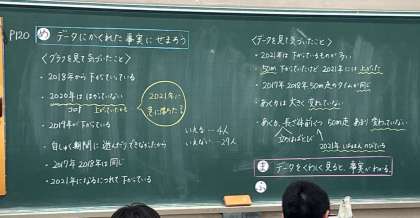 P120
め データにかくれた事実にせまろう
<グラフを見て気づいたこと>
・2018年から下がっている
・2020年ははかっていない
コロナ 上がっている
2021年に
急に増えた?
・2019年が下がっている
・自しゅく期間に遊んだりできなかったから
いえる…4人
いえない…29人
・2017年2018年は同じ
・2021年になるにつれて下がっている
<データを見て気づいたこと>
・2021年は下がっているものが多い
・50m下がっていたけど2021年には上がった
・2017年2018年50m走のタイムが同じ
・あくカは大きく変わていない
・あく力、長ざ体前くつ、50m走 あまり変わっていない
立ちはばとび
2021年いちばんのびている
ま データをくわしく見ると、事実がわかる。
ふ